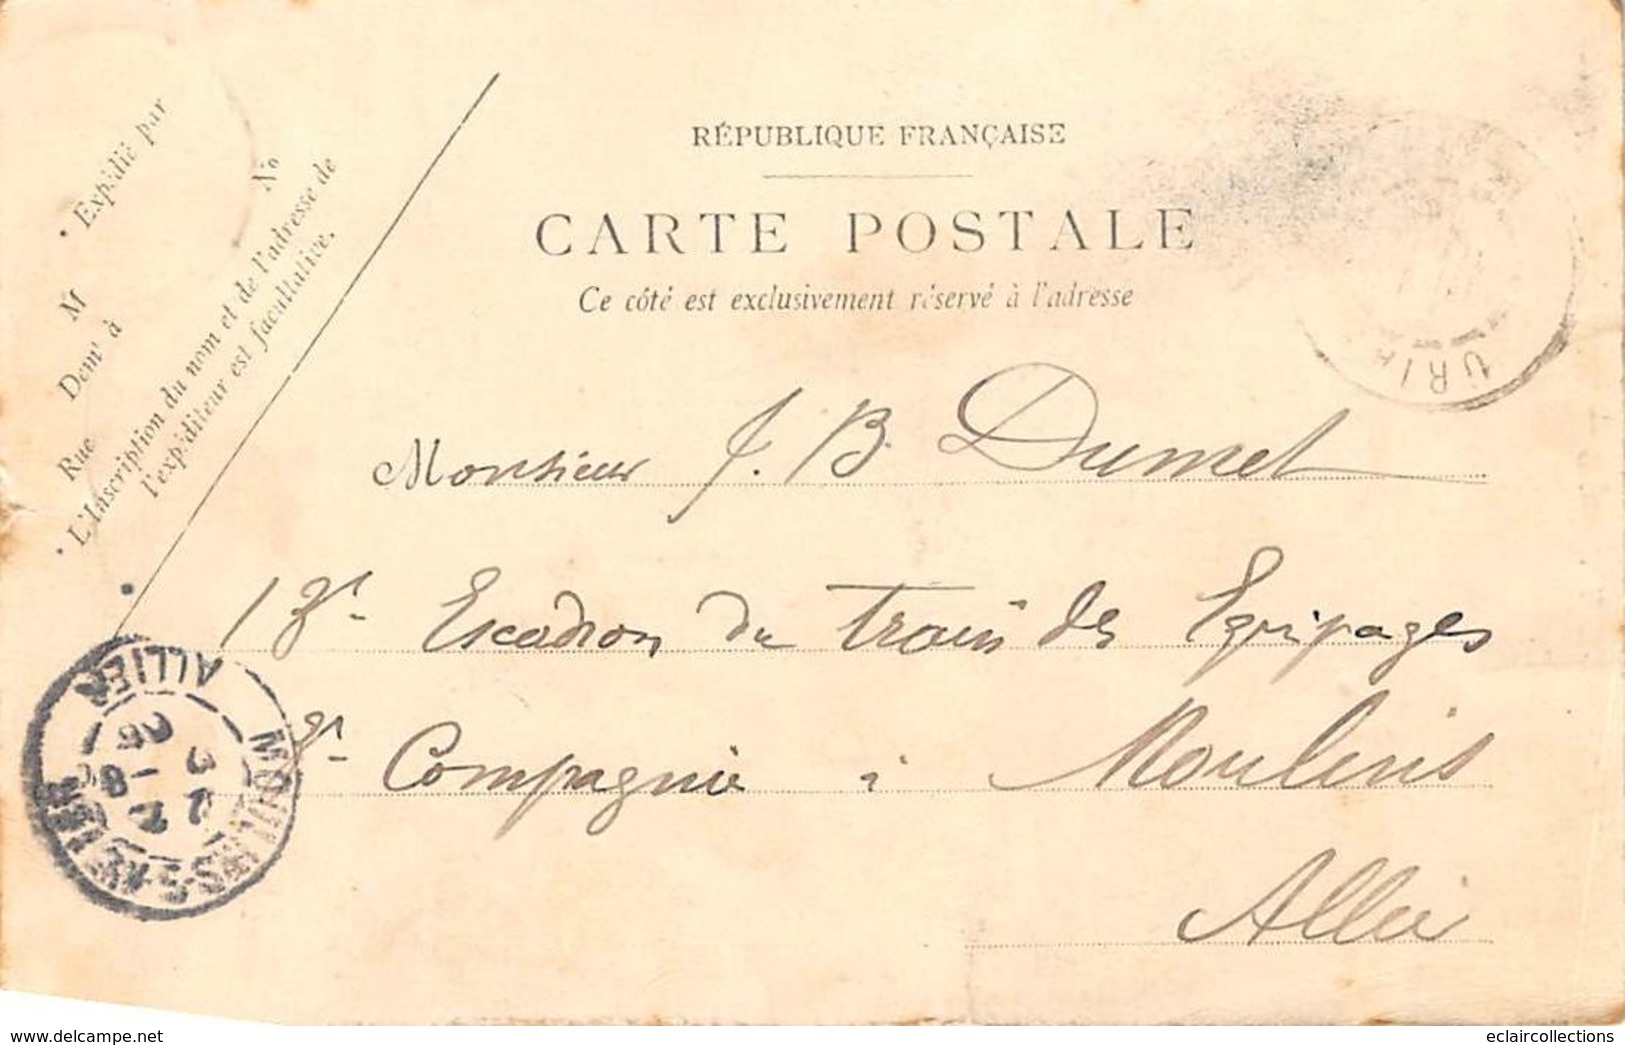 Expédié par
M
Demt à
Rue No
L'Inscription du nom et de l'adresse de
l'expéditeur est facultative.
RÉPUBLIQUE FRANÇAISE
CARTE POSTALE
Ce côté est exclusivement réservé à l'adresse
Monsieur J. B. Dumet
13e Escadron du train des Equipages
3e Compagnie à Moulins
Allier
MOULINS-S-ALLIER
ALLIER
delcampe.net
eclaircollections